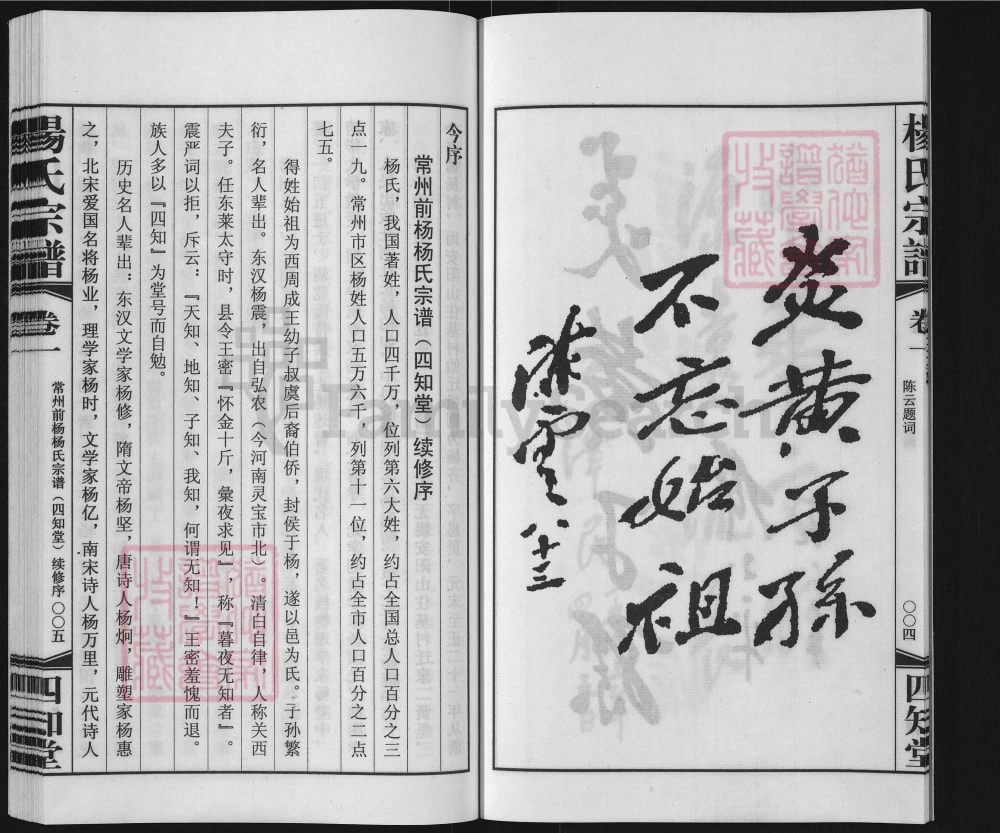 楊氏宗譜
卷一
陈云题词
〇〇四
四知堂
炎黄子孫
不忘始祖
陈雲 八十三
今序
常州前杨杨氏宗谱（四知堂）续修序
杨氏，我国著姓，人口四千万，位列第六大姓，约占全国总人口百分之三
点一九。常州市区杨姓人口五万六千，列第十一位，约占全市人口百分之二点
七五。
得姓始祖为西周成王幼子叔虞后裔伯侨，封侯于杨，遂以邑为氏。子孙繁
衍，名人辈出。东汉杨震，出自弘农（今河南灵宝市北）。清白自律，人称关西
夫子。任东莱太守时，县令王密『怀金十斤，彙夜求见』，称『暮夜无知者』。
震严词以拒，斥云：『天知、地知、子知、我知，何谓无知！』王密羞愧而退。
族人多以『四知』为堂号而自勉。
历史名人辈出：东汉文学家杨修，隋文帝杨坚，唐诗人杨炯，雕塑家杨惠
之，北宋爱国名将杨业，理学家杨时，文学家杨亿，南宋诗人杨万里，元代诗人
楊氏宗譜
卷一
常州前杨杨氏宗谱（四知堂）续修序
〇〇五
四知堂
FamilySearch